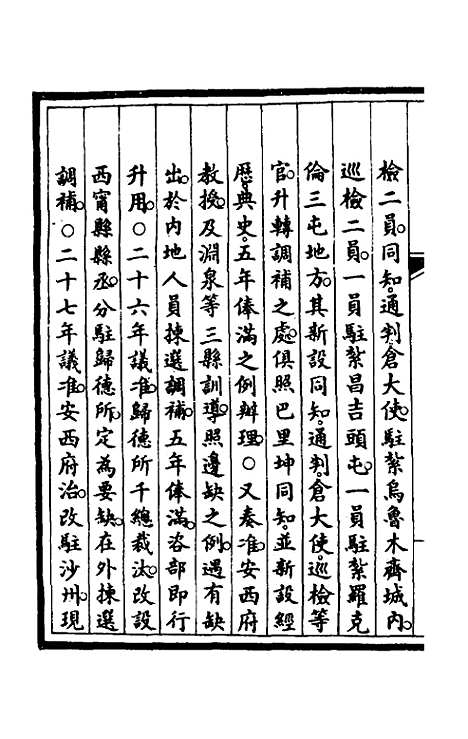 檢二員。同知。通判。倉大使。駐紮烏魯木齊城內。
巡檢二員。一員駐紮昌吉頭屯。一員駐紮羅克
倫三屯地方。其新設同知。通判。倉大使。巡檢等
官。升轉調補之處。俱照巴里坤同知。並新設經
歷。典史。五年俸滿之例辦理。○又奏准。安西府
教授。及淵泉等三縣訓導。照邊缺之例。遇有缺
出。於內地人員揀選調補。五年俸滿。咨部即行
升用。○二十六年議准。歸德所千總裁汰。改設
西甯縣縣丞。分駐歸德所。定為要缺。在外揀選
調補。○二十七年議准。安西府治。改駐沙州。現